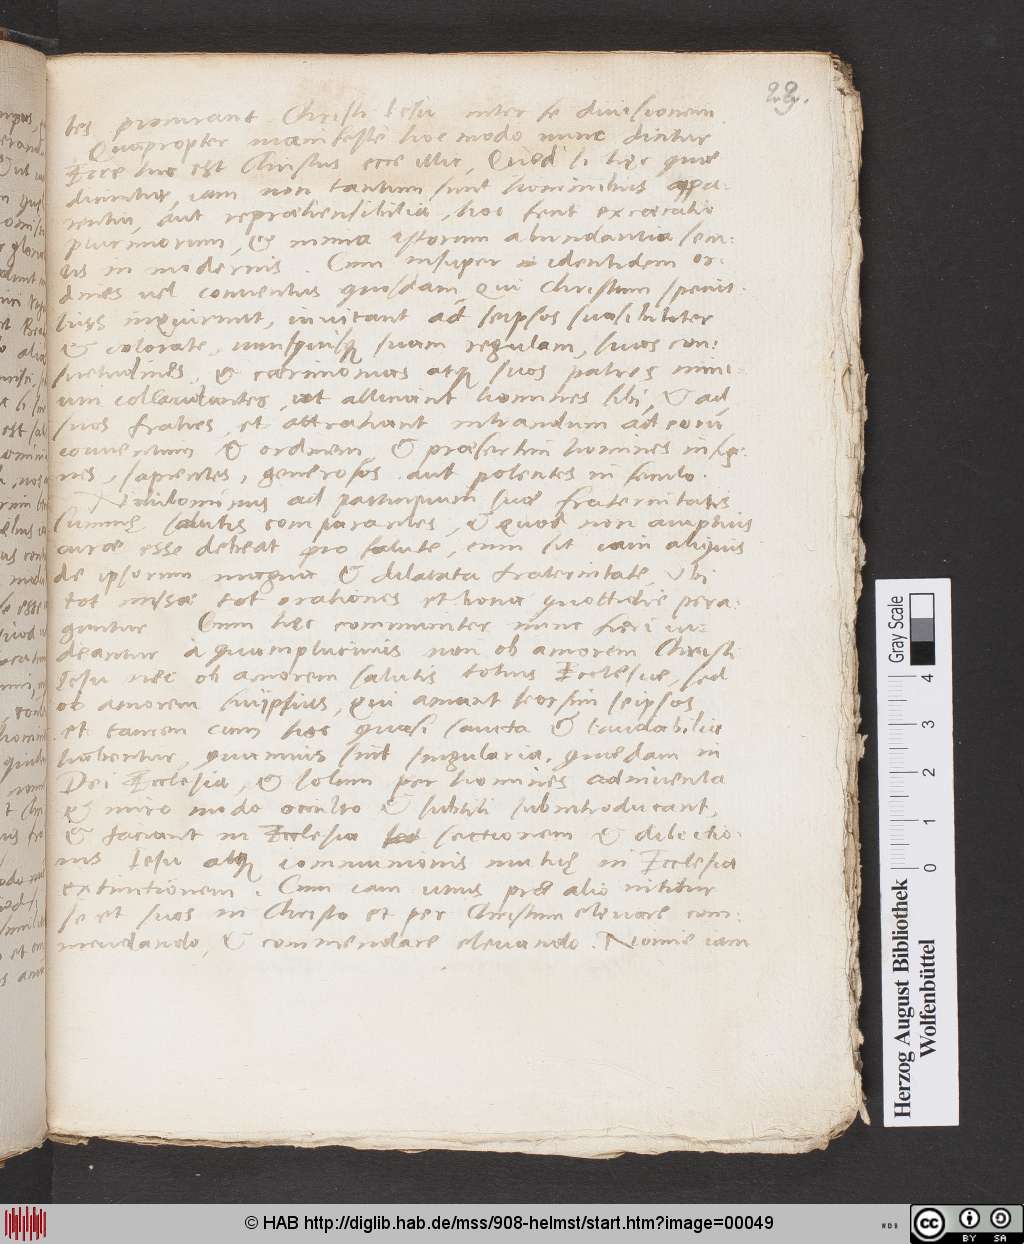 22.
tes procurant Christi Iesu inter se divisionem.
Quapropter manifeste hoc modo nunc dicitur
Ecce hic est Christus ecce illic, Quod si hęc quæ
dicuntur, iam non tantum sunt hominibus appa-
rentia, aut repræhensibilia, hoc fecit excæcatio
plurimorum, & nimia istorum abundantia
in modernis. Cum insuper identidem or-
dines vel conventus quosdam, qui Christum
inquirunt, invitant ad seipsos suasibiliter
& colorate, unusquisq suam regulam, suas con-
suetudines, & cærimonias atq suos patres nimi-
um collaudantes, ut alliciant homines sibi, & ad
suos fratres, et attrahant intrandum ad eorum
conventum & ordinem, & præsertim homines insig-
nes, sapientes, generosos aut potentes in seculo.
Nihilominus ad participium suæ fraternitatis
summę salutis comparantes, & quod non amplius
curæ esse debeat pro salute, cum sit iam aliquis
de ipsorum magna & dilatata fraternitate, Vbi
tot missæ tot orationes et bona quottidie pera-
guntur Cum hęc communiter nunc fieri vi-
deantur à quamplurimis non ob amorem Christi
Iesu nec ob amorem salutis totius Ecclesiæ, sed
ob amorem suiipsius, qui amant seorsim seipsos
et tamen cum hæc quasi sancta & laudabilia
habentur, quamvis sint singularia, quædam in
Dei Ecclesia, & solum per homines adinventa
& miro modo occulto & subtili subintroducant,
& faciant in Ecclesia sectionem & dilectio-
nis Iesu atq communionis mutuę in Ecclesia
extinctionem. Cum iam unus præ alio nititur
se et suos in Christo et per Christum elevare com-
mendando, & commendare elevando. Nonne iam
Gray Scale
0 1 2 3 4
Herzog August Bibliothek
Wolfenbüttel
© HAB http://diglib.hab.de/mss/908-helmst/start.htm?image=00049
WDB
cc BY SA